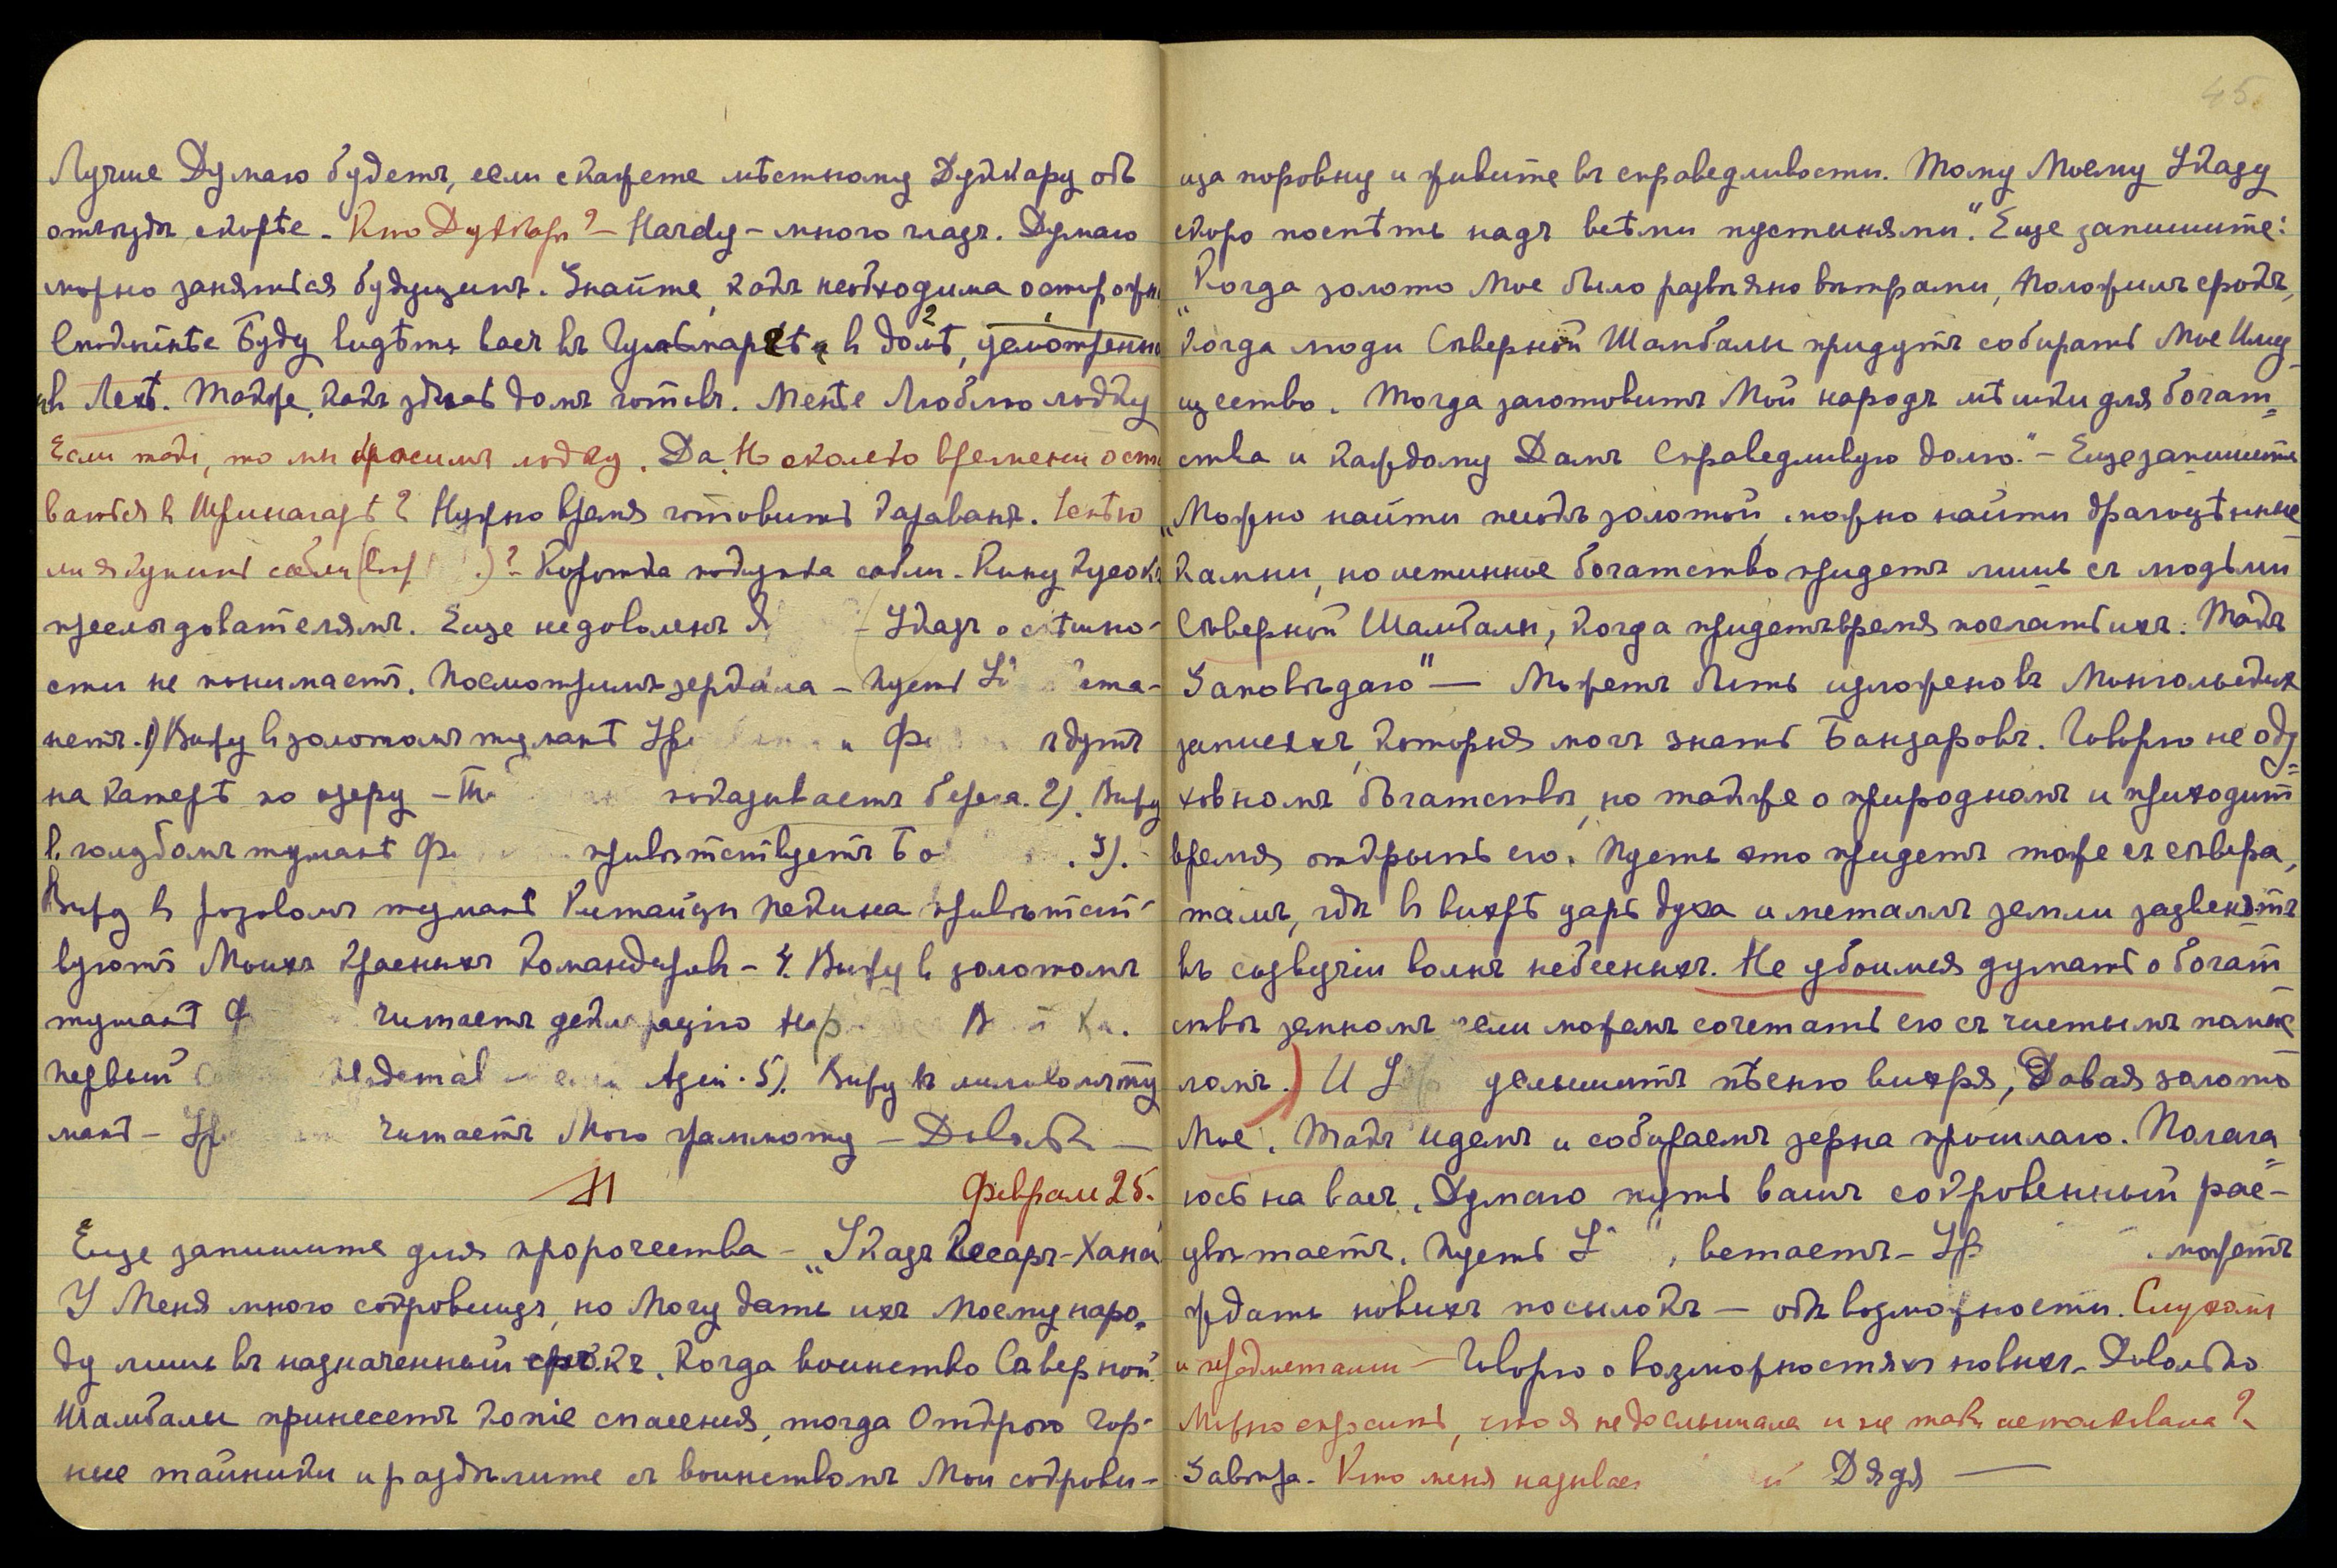 Лучше Думаю будетъ, если скажете мѣстному Дуккару объ
отъѣздѣ скорѣе. Кто Дуккаръ? – Hardy – много глазъ. Думаю
можно заняться будущимъ. Знайте, какъ необходима осторожн
Сподните Буду видѣть васъ въ Гульмаргѣ в домѣ,
въ Лехѣ. Также, какъ здѣсь домъ готовъ. Менѣе Люблю лодку
Если такъ, то мы бросимъ лодку. Да. Но сколько времени оста
ваться въ Шринагарѣ? Нужно время готовить караванъ.
ли я купить соболи ? – соболи. Кину кусокъ
преслѣдователямъ. Еще недоволенъ Я – Указъ о спѣшно-
сти не понимаетъ. Посмотримъ зеркала – Пусть
нетъ. 1) Вижу в золотомъ туманѣ и ѣдутъ
на катерѣ по озеру – показываетъ берега. 2). Вижу
в голубомъ туманѣ привѣтствуетъ . 3). –
Вижу в розовомъ туманѣ Китайцы Пекина привѣтст-
вуютъ Моихъ Красныхъ Командировъ – 4. Вижу в золотомъ
туманѣ читаетъ декларацію
первый Asia. 5). Вижу въ лиловомъ ту
манѣ – читаетъ Мою грамоту – Довольно —
Февраля 25.
Еще запишите для пророчества – „Указъ Гессаръ-Хана
У Меня много сокровищъ, но Могу дать ихъ Моему наро-
ду лишь въ назначенный срокъ. Когда воинство Сѣверной
Шамбалы принесетъ копіе спасенія, тогда Открою гор-
ные тайники и раздѣлите съ воинствомъ Мои сокрови-
ща поровну и живите въ справедливости. Тому Моему Указу
скоро поспѣть надъ всѣми пустынями". Еще запишите:
„Когда золото Мое было развѣяно вѣтрами, Положилъ срокъ,
когда люди Сѣверной Шамбалы придутъ собирать Мое Иму
щество. Тогда заготовитъ Мой народъ мѣшки для богат=
ства и каждому Дамъ Справедливую долю." – Еще запишите
„Можно найти песокъ золотой, можно найти драгоцѣнные
камни, но истинное богатство придетъ лишь съ людьми
Сѣверной Шамбалы, когда придетъ время послать ихъ. Такъ
Заповѣдаю" — Можетъ быть изложено въ Монгольскихъ
запискахъ, которыя могъ знать Банзаровъ. Говорю не о ду=
ховномъ богатствѣ, но также о природномъ и приходит
время открыть его. Пусть это придетъ тоже съ сѣвера,
тамъ, гдѣ в вихрѣ царь духа и металлъ земли зазвенятъ
въ созвучіи волнъ небесныхъ. Не убоимся думать о богат
ствѣ земномъ если можемъ сочетать его съ чистымъ помыс
ломъ. И услышитъ пѣсню вихря, Давая золото
Мое. Такъ идемъ и собираемъ зерна прошлаго. Полага=
юсь на васъ. Думаю путь вашъ сокровенный рас-
цвѣтаетъ. Пусть , встаетъ – можетъ
ждать новыхъ посылокъ – объ возможности.
и предметами – Говорю о возможностяхъ новыхъ. Довольно
Можно спросить, что я недослышала и не такъ истолковала?
Завтра. Кто меня называе Дядя —